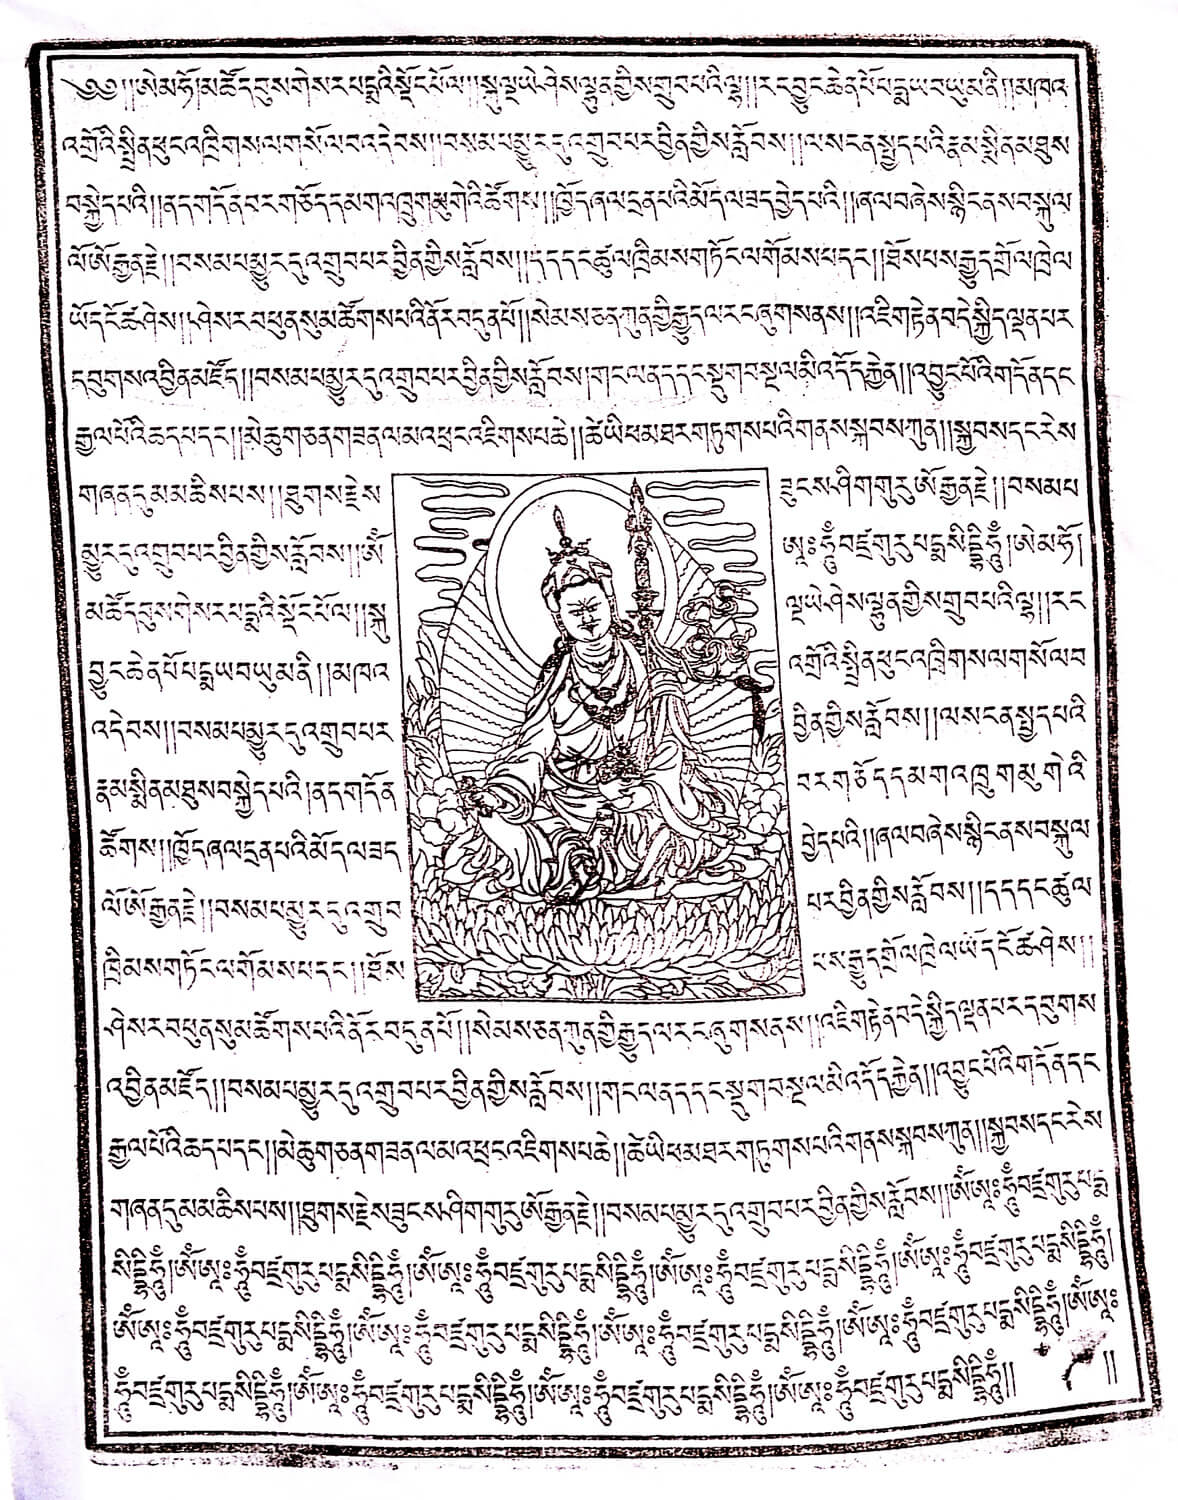 ༄༅།།ཨེ་མ་ཧོ།མཚོ་དབུས་གེ་སར་པདྨའི་སྡོང་པོ་ལ།།སྐུ་ལྔ་ཡེ་ཤེས་ལྷུན་གྱིས་གྲུབ་པའི་ལྷ།།རང་བྱུང་ཆེན་པོ་པདྨ་ཡབ་ཡུམ་ནི།།མཁའ་
འགྲོའི་སྤྲིན་ཕུང་འཁྲིགས་ལ་གསོལ་བ་འདེབས།།བསམ་པ་མྱུར་དུ་འགྲུབ་པར་བྱིན་གྱིས་རློབས།།ལས་ངན་སྤྱད་པའི་རྣམ་སྨིན་མཐུས་
བསྐྱེད་པའི།།ནད་གདོན་བར་གཅོད་དམག་འཁྲུག་མུ་གེའི་ཚོགས།།ཁྱོད་ཞལ་དྲན་པའི་མོད་ལ་ཟད་བྱེད་པའི།།ཞལ་བཞེས་སྙིང་ནས་བསྐུལ་
ལོ་ཨོ་རྒྱན་རྗེ།།བསམ་པ་མྱུར་དུ་འགྲུབ་པར་བྱིན་གྱིས་རློབས།།དད་དང་ཚུལ་ཁྲིམས་གཏོང་ལ་གོམས་པ་དང་།།ཐོས་པས་རྒྱུད་གྲོལ་ཁྲེལ་
ཡོད་ངོ་ཚ་ཤེས།།ཤེས་རབ་ཕུན་སུམ་ཚོགས་པའི་ནོར་བདུན་པོ།།སེམས་ཅན་ཀུན་གྱི་རྒྱུད་ལ་རང་ཞུགས་ནས།།འཇིག་རྟེན་བདེ་སྐྱིད་ལྡན་པར་
དབུགས་འབྱིན་མཛོད།།བསམ་པ་མྱུར་དུ་འགྲུབ་པར་བྱིན་གྱིས་རློབས།གང་ལ་ནད་དང་སྡུག་བསྔལ་མི་འདོད་རྐྱེན།།འབྱུང་པོའི་གདོན་དང་
རྒྱལ་པོའི་ཆད་པ་དང་།།མེ་ཆུ་གཅན་གཟན་ལམ་འཕྲང་འཇིགས་པ་ཆེ།།ཚེ་ཡི་ཕ་མཐར་གཏུགས་པའི་གནས་སྐབས་ཀུན།།སྐྱབས་དང་རེ་ས་
གཞན་དུ་མ་མཆིས་པས།།ཐུགས་རྗེས་ ཟུངས་ཤིག་གུ་རུ་ཨོ་རྒྱན་རྗེ།།བསམ་པ་
མྱུར་དུ་འགྲུབ་པར་བྱིན་གྱིས་རློབས།།ཨོཾ་ ཨཱཿཧཱུྃ་བཛྲ་གུ་རུ་པདྨ་སིདྡྷི་ཧཱུྃ།།ཨེ་མ་ཧོ།
མཚོ་དབུས་གེ་སར་པདྨའི་སྡོང་པོ་ལ།།སྐུ་ ལྔ་ཡེ་ཤེས་ལྷུན་གྱིས་གྲུབ་པའི་ལྷ།།རང་
བྱུང་ཆེན་པོ་པདྨ་ཡབ་ཡུམ་ནི།།མཁའ་ འགྲོའི་སྤྲིན་ཕུང་འཁྲིགས་ལ་གསོལ་བ་
འདེབས།།བསམ་པ་མྱུར་དུ་འགྲུབ་པར་ བྱིན་གྱིས་རློབས།།ལས་ངན་སྤྱད་པའི་
རྣམ་སྨིན་མཐུས་བསྐྱེད་པའི།ནད་གདོན་ བར་གཅོད་དམག་འཁྲུག་མུ་གེའི་
ཚོགས།།ཁྱོད་ཞལ་དྲན་པའི་མོད་ལ་ཟད་ བྱེད་པའི།།ཞལ་བཞེས་སྙིང་ནས་བསྐུལ་
ལོ་ཨོ་རྒྱན་རྗེ།།བསམ་པ་མྱུར་དུ་འགྲུབ་ པར་བྱིན་གྱིས་རློབས།།དད་དང་ཚུལ་
ཁྲིམས་གཏོང་ལ་གོམས་པ་དང་།།ཐོས་ པས་རྒྱུད་གྲོལ་ཁྲེལ་ཡོད་ངོ་ཚ་ཤེས།།
ཤེས་རབ་ཕུན་སུམ་ཚོགས་པའི་ནོར་བདུན་པོ།།སེམས་ཅན་ཀུན་གྱི་རྒྱུད་ལ་རང་ཞུགས་ནས།།འཇིག་རྟེན་བདེ་སྐྱིད་ལྡན་པར་དབུགས་
འབྱིན་མཛོད།།བསམ་པ་མྱུར་དུ་འགྲུབ་པར་བྱིན་གྱིས་རློབས།།གང་ལ་ནད་དང་སྡུག་བསྔལ་མི་འདོད་རྐྱེན།།འབྱུང་པོའི་གདོན་དང་
རྒྱལ་པོའི་ཆད་པ་དང་།།མེ་ཆུ་གཅན་གཟན་ལམ་འཕྲང་འཇིགས་པ་ཆེ།།ཚེ་ཡི་ཕ་མཐར་གཏུགས་པའི་གནས་སྐབས་ཀུན།།སྐྱབས་དང་རེ་ས་
གཞན་དུ་མ་མཆིས་པས།།ཐུགས་རྗེས་ཟུངས་ཤིག་གུ་རུ་ཨོ་རྒྱན་རྗེ།།བསམ་པ་མྱུར་དུ་འགྲུབ་པར་བྱིན་གྱིས་རློབས།།ཨོཾ་ཨཱཿཧཱུྃ་བཛྲ་གུ་རུ་པདྨ་
སིདྡྷི་ཧཱུྃ།ཨོཾ་ཨཱཿཧཱུྃ་བཛྲ་གུ་རུ་པདྨ་སིདྡྷི་ཧཱུྃ།ཨོཾ་ཨཱཿཧཱུྃ་བཛྲ་གུ་རུ་པདྨ་སིདྡྷི་ཧཱུྃ།ཨོཾ་ཨཱཿཧཱུྃ་བཛྲ་གུ་རུ་པདྨ་སིདྡྷི་ཧཱུྃ།ཨོཾ་ཨཱཿཧཱུྃ་བཛྲ་གུ་རུ་པདྨ་སིདྡྷི་ཧཱུྃ།
ཨོཾ་ཨཱཿཧཱུྃ་བཛྲ་གུ་རུ་པདྨ་སིདྡྷི་ཧཱུྃ།ཨོཾ་ཨཱཿཧཱུྃ་བཛྲ་གུ་རུ་པདྨ་སིདྡྷི་ཧཱུྃ།ཨོཾ་ཨཱཿཧཱུྃ་བཛྲ་གུ་རུ་པདྨ་སིདྡྷི་ཧཱུྃ།ཨོཾ་ཨཱཿཧཱུྃ་བཛྲ་གུ་རུ་པདྨ་སིདྡྷི་ཧཱུྃ།ཨོཾ་ཨཱཿ
ཧཱུྃ་བཛྲ་གུ་རུ་པདྨ་སིདྡྷི་ཧཱུྃ།ཨོཾ་ཨཱཿཧཱུྃ་བཛྲ་གུ་རུ་པདྨ་སིདྡྷི་ཧཱུྃ།ཨོཾ་ཨཱཿཧཱུྃ་བཛྲ་གུ་རུ་པདྨ་སིདྡྷི་ཧཱུྃ།ཨོཾ་ཨཱཿཧཱུྃ་བཛྲ་གུ་རུ་པདྨ་སིདྡྷི་ཧཱུྃ།། །།